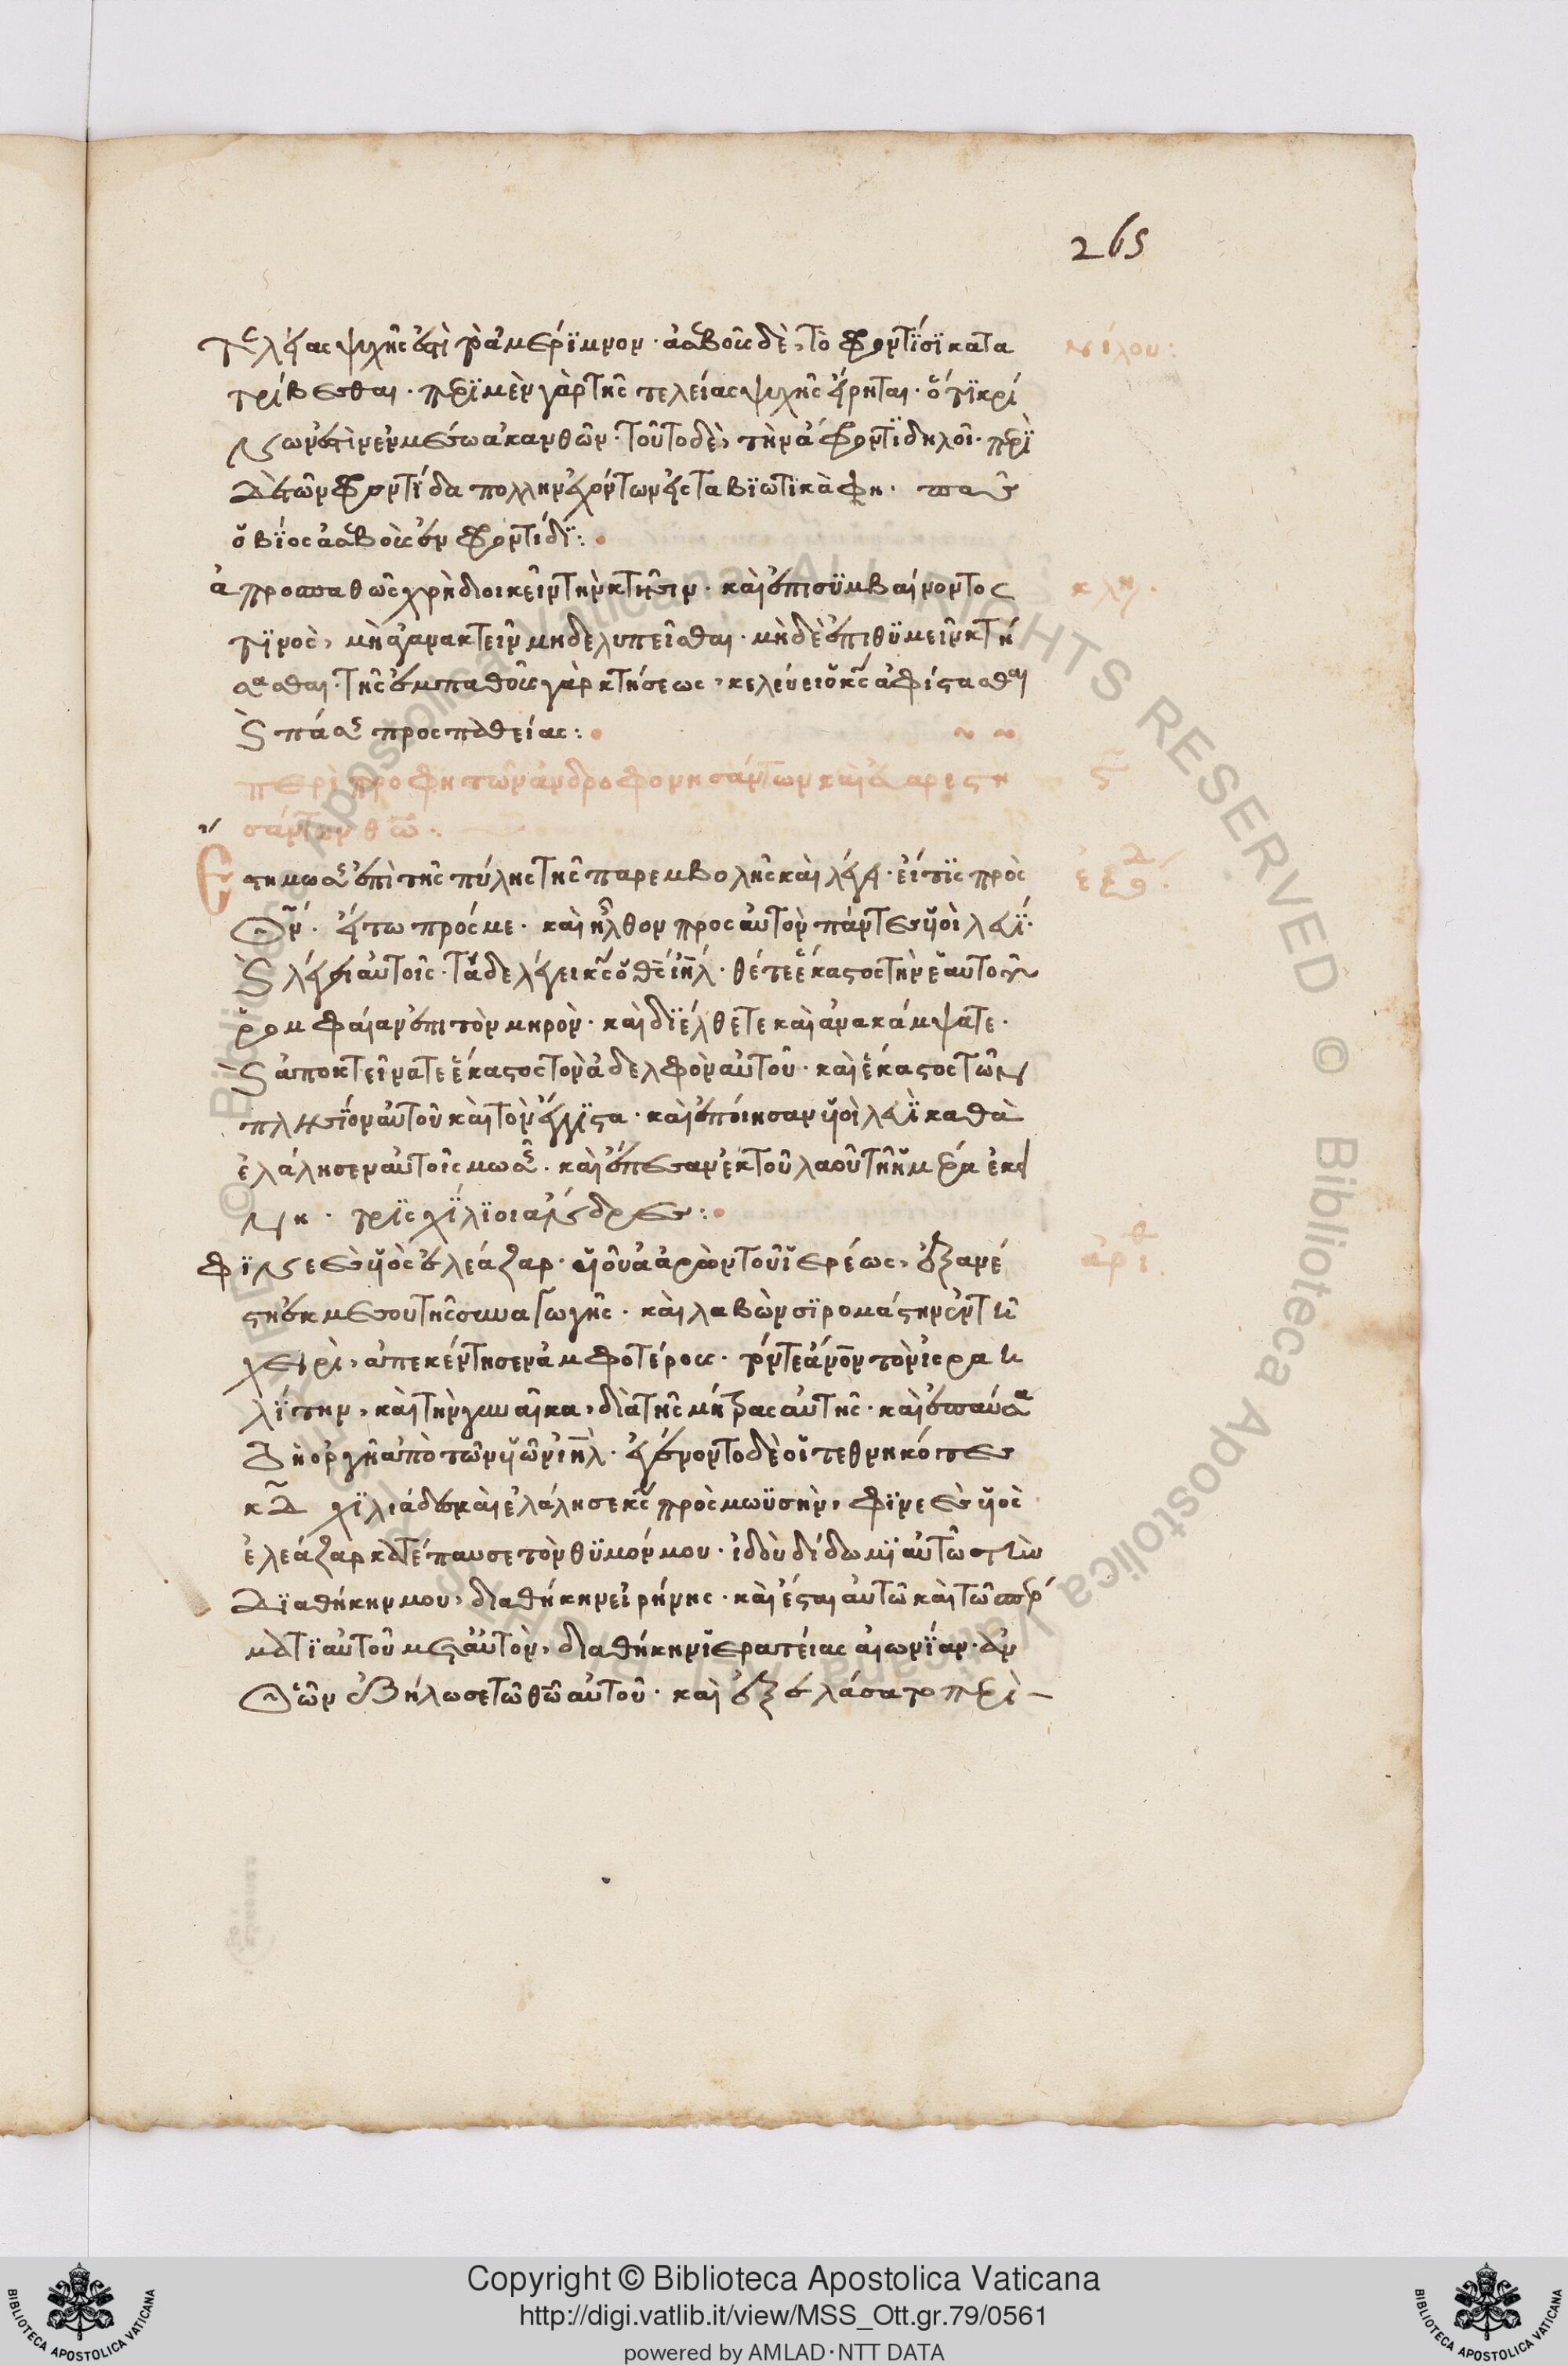 265
τελείας ψυχῆς ἐστὶ τὸ ἀμέριμνον· ἀσεβοῦς δὲ, τὸ φροντίσι κατα
νείλου:
τρίβεσθαι· περὶ μὲν γὰρ τῆς τελείας ψυχῆς εἴρηται· ὅτι κρί
νον ἐστὶν ἐν μέσω ἀκανθῶν· τοῦτο δὲ, τὴν ἀφροντι δηλοῖ· περὶ
δὲ τῶν φροντίδα πολλὴν ἐχόντων εἰς τὰ βιωτικὰ φη· πᾶς
ὁ βίος ἀσεβοῦς ἐν φροντίδι:
ἀπροσπαθῶς χρὴ διοικεῖν τὴν κτῆσιν· καὶ ἐπισυμβαίνοντος
κλη.
τινὸς, μὴ ἀγανακτεῖν μηδὲ λυπεῖσθαι· μὴ δὲ ἐπιθυμεῖν κτή
σασθαι· τῆς ἐμπαθοῦς γὰρ κτήσεως, κελεύει ὁ κς ἀφίστασθαι
καὶ πάσης προσπαθείας:
περὶ προφητῶν ἀνδροφονησάντων καὶ εὐαρεστη
ϛ
σάντων θῶ:
Ἔστη μωσῆς ἐπὶ τῆς πύλης τῆς παρεμβολῆς καὶ λέγει· εἴ τις πρὸς
ἐξοδ.
κν· ἴτω πρός με· καὶ ἦλθον πρὸς αὐτὸν πάντες υἱοὶ λευί·
καὶ λέγει αὐτοῖς· τάδε λέγει κς ὁ θς ιηλ· θέτε ἕκαστος τὴν ἑαυτοῦ
ῥομφαίαν ἐπὶ τὸν μηρὸν· καὶ διέλθετε καὶ ἀνακάμψατε·
καὶ ἀποκτείνατε ἕκαστος τὸν ἀδελφὸν αὐτοῦ· καὶ ἕκαστος τὸν
πλησίον αὐτοῦ καὶ τὸν ἔγγιστα· καὶ ἐποίησαν υἱοὶ λευὶ καθὰ
ἐλάλησεν αὐτοῖς μωσῆς· καὶ ἔπεσαν ἐκ τοῦ λαοῦ τῆ ἡμέρα ἐκεί
νη· τρισχίλιοι ἄνδρες:
Φινεὲς υἱὸς ἐλεάζαρ· υἱοῦ ἀαρὼν τοῦ ἱερέως, ἐξανέ
ἀριθ.
στη ἐκ μέσου τῆς συναγωγῆς· καὶ λαβὼν σιρομάστην ἐν τῆ
χειρὶ, ἀπεκέντησεν ἀμφοτέρους· τόν τε ἄνον τὸν ἰσραη
λίτην, καὶ τὴν γυναῖκα, διὰ τῆς μήτρας αὐτῆς· καὶ ἐπαύσα
το ἡ ὀργὴ ἀπὸ τῶν υἱῶν ιηλ· ἐγένοντο δὲ οἱ τεθνηκότες
κδ χιλιάδες καὶ ἐλάλησε κς πρὸς μωϋσὴν, φινεὲς υἱὸς
ἐλεάζαρ κατέπαυσε τὸν θυμόν μου· ἰδοὺ δίδωμι αὐτῶ τὴν
διαθήκην μου, διαθήκην εἰρήνης· καὶ ἔσται αὐτῶ καὶ τῶ σπέρ
ματι αὐτοῦ μετ' αὐτὸν, διαθήκην ἱερατείας αἰωνίαν· ἀν
θ' ὧν ἐζήλωσε τῶ θῶ αὐτοῦ· καὶ ἐξελάσατο περὶ
Copyright © Biblioteca Apostolica Vaticana
http://digi.vatlib.it/view/MSS_Ott.gr.79/0561
powered by AMLAD·NTT DATA
BIBLIOTECA APOSTOLICA VATICANA
BIBLIOTECA APOSTOLICA VATICANA